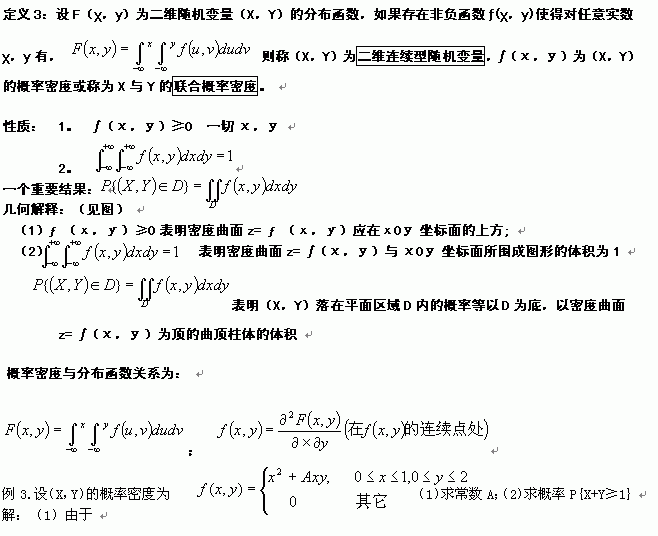 定义3：设F（χ，y）为二维随机变量（X，Y）的分布函数，如果存在非负函数ƒ(χ，y)使得对任意实数
χ，y有， F(x, y) = ∫_{-∞}^{x} ∫_{-∞}^{y} f(u, v)dudv 则称（X，Y）为二维连续型随机变量，ƒ（x，y）为（X，Y）
的概率密度或称为X与Y的联合概率密度。
性质： 1。 ƒ（x，y）≥0 一切x，y
2。 ∫_{-∞}^{+∞} ∫_{-∞}^{+∞} f(x, y)dxdy = 1
一个重要结果：P{(X, Y) ∈ D} = ∬_D f(x, y)dxdy
几何解释：（见图）
（1）ƒ（x，y）≥0表明密度曲面z=ƒ（x，y）应在xOy坐标面的上方;
（2）∫_{-∞}^{+∞} ∫_{-∞}^{+∞} f(x, y)dxdy = 1 表明密度曲面z=ƒ（x，y）与xOy坐标面所围成图形的体积为1
P{(X, Y) ∈ D} = ∬_D f(x, y)dxdy 表明（X，Y）落在平面区域D内的概率等以D为底，以密度曲面
z=ƒ（x，y）为顶的曲顶柱体的体积
概率密度与分布函数关系为：
F(x, y) = ∫_{-∞}^{x} ∫_{-∞}^{y} f(u, v)dudv ； f(x, y) = ∂²F(x, y)/∂×∂y (在f(x, y)的连续点处)
例3.设(X,Y)的概率密度为 f(x, y) = { x² + Axy, 0 ≤ x ≤ 1,0 ≤ y ≤ 2 （1)求常数A;(2)求概率P{X+Y≥1}
0 其它
解：（1）由于